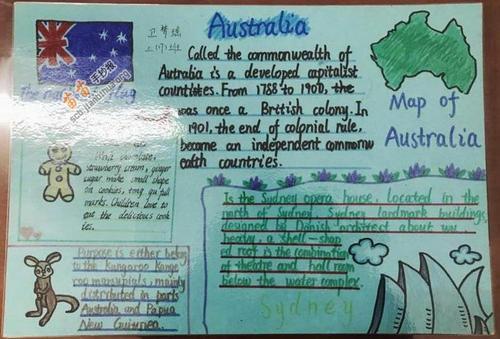 Australia
卫梦瑶
Called the commonwealth of
Autralia is a developed apitalist
countities. From 1788 to 1900, the
was once a British colony. In
1901, the end of colonial rule,
become an independent commonw
ealth countries.
Map of
Australia
The flag
苗苗手抄报
strawberry cream, ginger
sugar make small shape
on cookies,
marks. Children love to
eat the delicious cook
ies.
Purpose is either belong
to the kangaroo Kanga
roo marsupials, mainly
distributed in parts
Australia and Papua
New Guinea.
Is the Sydney opera house, located in the
north of Sydney, Sydney landmark buildings
designed by Danish architect about
heavy, a shell-shap
ed roof is the combination
of theatre and hall room
below the water complex.
Sydney